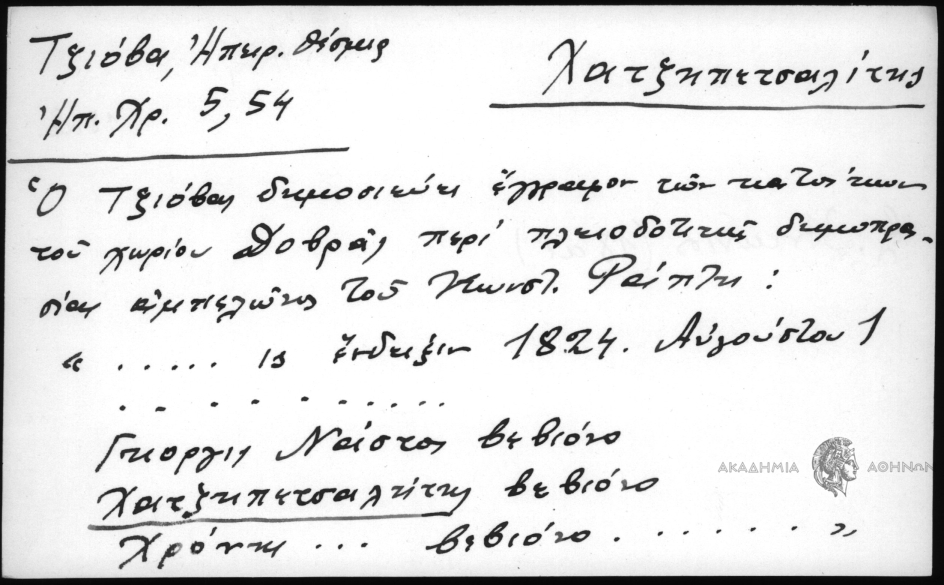 Τζιόβα, Ἠπειρ. θέσμια
Χατζηπετσαλίτης
Ἠπ. Χρ. 5, 54
Ὁ Τζιόβας δημοσιεύει ἔγγραφον τῶν κατοίκων
τοῦ χωρίου Δοβρᾶς περί πλειοδοτικῆς δημοπρα-
σίας ἀμπελῶνος τοῦ Κωνστ. Ράπτη :
« ..... ις ἔνδειξιν 1824. Αὐγούστου 1
..........
Γηοργις Νάστος βεβιόνο
Χατζηπετσαλήτης βεβιόνο
Χρόνης ... βεβιόνο ....... »
ΑΚΑΔΗΜΙΑ ΑΘΗΝΩΝ